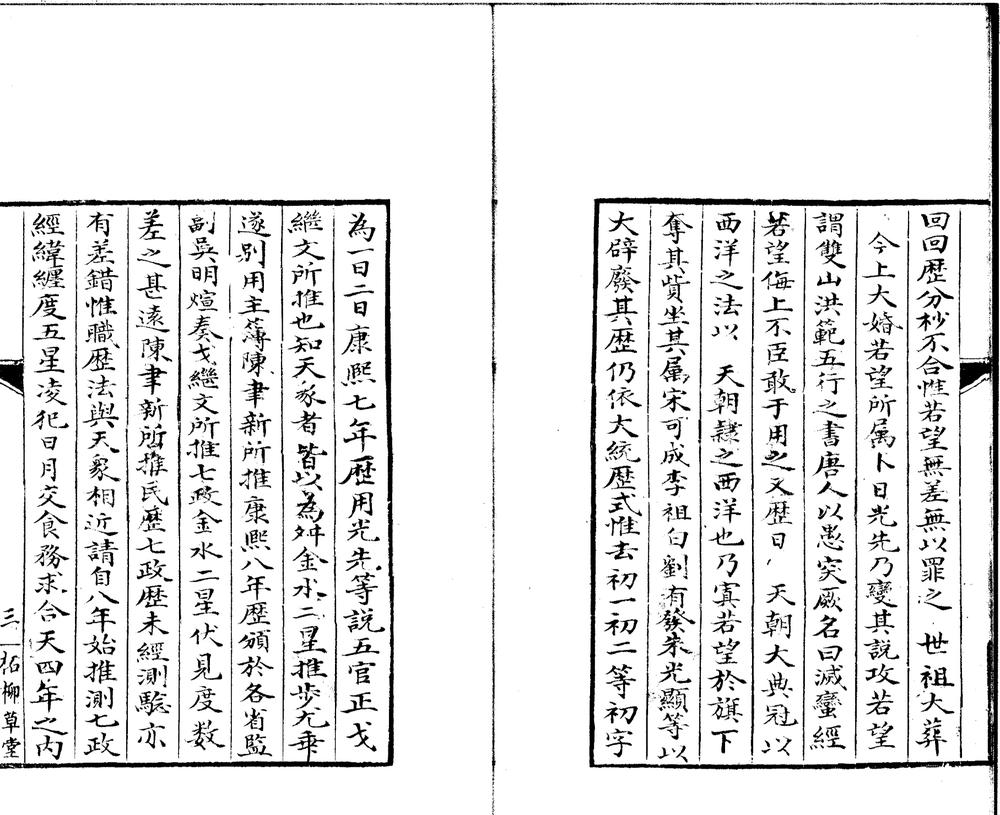 回回歷分秒不合惟若望無差無以罪之　世祖大葬
今上大婚若望所属卜日光先乃變其說攻若望
謂雙山洪範五行之書唐人以愚突厥名曰滅蠻經
若望侮上不臣敢于用之又歷日　天朝大典冠以
西洋之法以　天朝隸之西洋也乃寘若望於旗下
奪其貲坐其属宋可成李祖白劉有發朱光顯等以
大辟廢其歷仍依大統歷式惟去初一初二等初字
為一日二日康熙七年歷用光先等說五官正戈
繼文所推也知天象者皆以為舛金水二星推步尤乖
遂别用主簿陳聿新所推康熙八年歷頒於各省監
副吳明烜奏戈繼文所推七政金水二星伏見度数
差之甚遠陳聿新所推民歷七政歷未經測驗亦
有差錯惟職歷法與天象相近請自八年始推測七政
經緯纏度五星凌犯日月交食務求合天四年之內
三
拓柳草堂